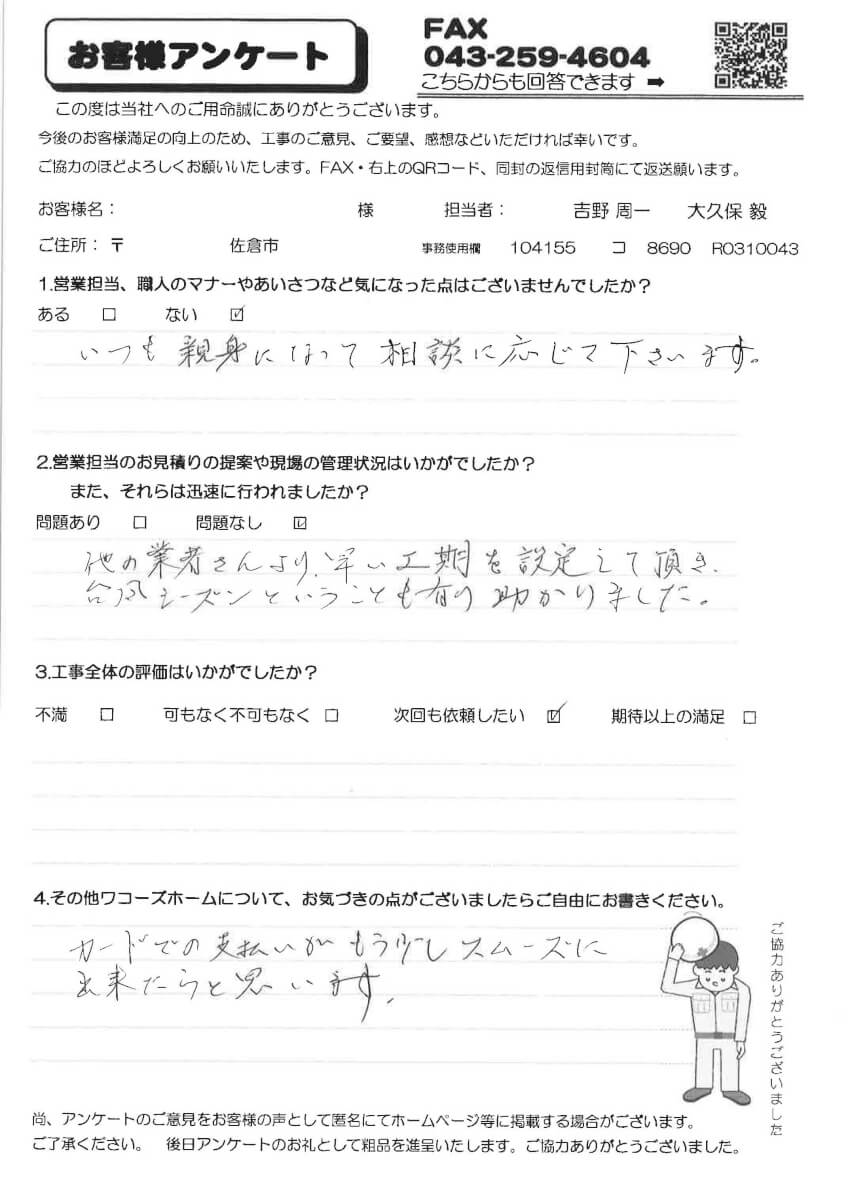 お客様アンケート
FAX
043-259-4604
こちらからも回答できます ➡
この度は当社へのご用命誠にありがとうございます。
今後のお客様満足の向上のため、工事のご意見、ご要望、感想などいただければ幸いです。
ご協力のほどよろしくお願いいたします。FAX・右上のQRコード、同封の返信用封筒にて返送願います。
お客様名： 様 担当者： 吉野 周一 大久保 毅
ご住所：〒 佐倉市 事務使用欄 104155 コ 8690 R0310043
1.営業担当、職人のマナーやあいさつなど気になった点はございませんでしたか？
ある □ ない ☑
いつも親身になって相談に応じて下さいます。
2.営業担当のお見積りの提案や現場の管理状況はいかがでしたか？
また、それらは迅速に行われましたか？
問題あり □ 問題なし ☑
他の業者さんより、早い工期を設定して頂き、
台風シーズンということも有り助かりました。
3.工事全体の評価はいかがでしたか？
不満 □ 可もなく不可もなく □ 次回も依頼したい ☑ 期待以上の満足 □
4.その他ワコーズホームについて、お気づきの点がございましたらご自由にお書きください。
カードでの支払いがもう少しスムーズに
出来たらと思います。
ご協力ありがとうございました
尚、アンケートのご意見をお客様の声として匿名にてホームページ等に掲載する場合がございます。
ご了承ください。 後日アンケートのお礼として粗品を進呈いたします。ご協力ありがとうございました。